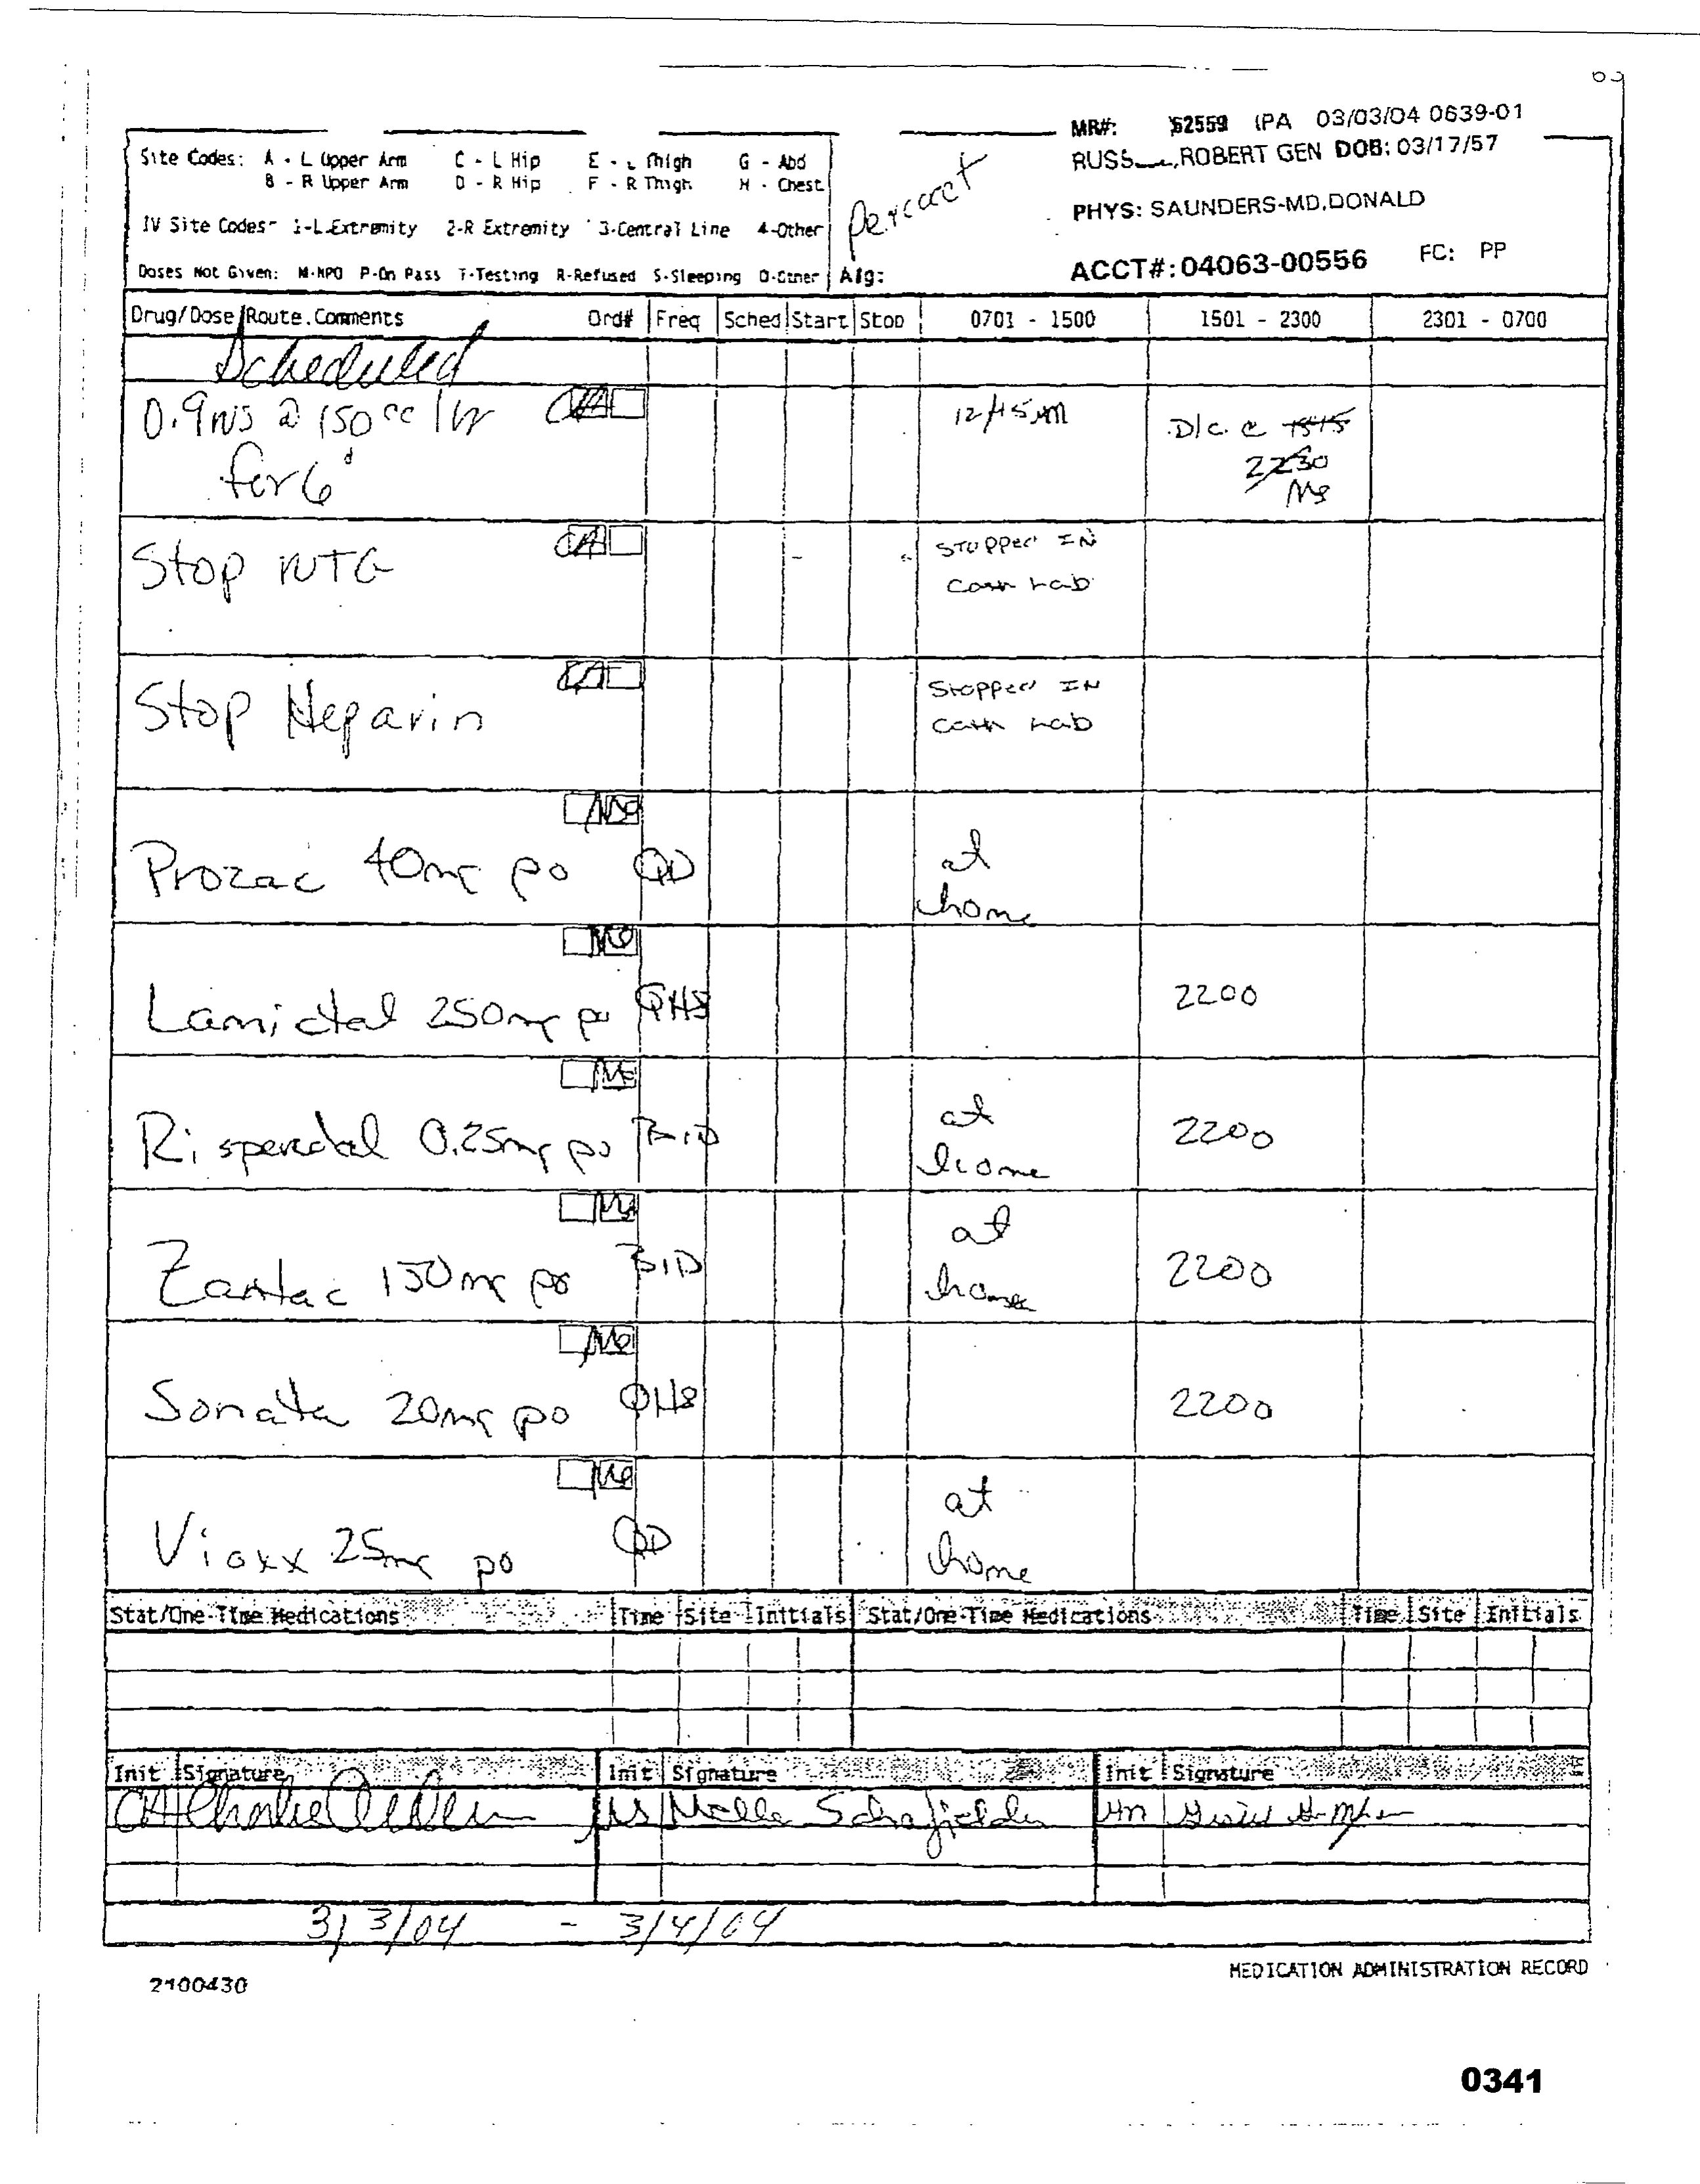 MR#: 62559 IPA 03/03/04 0639-01
RUSS ,ROBERT GEN DOB: 03/17/57
PHYS: SAUNDERS-MD,DONALD
ACCT#: 04063-00556 FC: PP
Site Codes: A - L Upper Arm C - L Hip E - L Thigh G - Abd
B - R Upper Arm D - R Hip F - R Thigh H - Chest
IV Site Codes- 1-L-Extremity 2-R Extremity 3-Central Line 4-Other
Doses Not Given: M-NPO P-On Pass T-Testing R-Refused S-Sleeping O-Other
Percocet
Alg:
Drug/Dose/Route.Comments Ord# Freq Sched Start Stop 0701 - 1500 1501 - 2300 2301 - 0700
Scheduled
0.9NS @ 150cc/hr 12/45 D/c @ 1515
for 6 2230
MS
Stop NTG CA Stopped IN
Cath Lab
Stop Heparin CA Stopped IN
Cath Lab
Prozac 40mg po QD at
home
Lamictal 250mg po QHS 2200
Risperedal 0.25mg po BID at 2200
home
Zantac 150mg po BID at 2200
home
Sonata 20mg po QHS 2200
Vioxx 25mg po QD at
home
Stat/One-Time Medications Time Site Initials Stat/One-Time Medications Time Site Initials
Init Signature Init Signature Init Signature
CA MS
3/3/04 - 3/4/04
2100430
MEDICATION ADMINISTRATION RECORD
0341